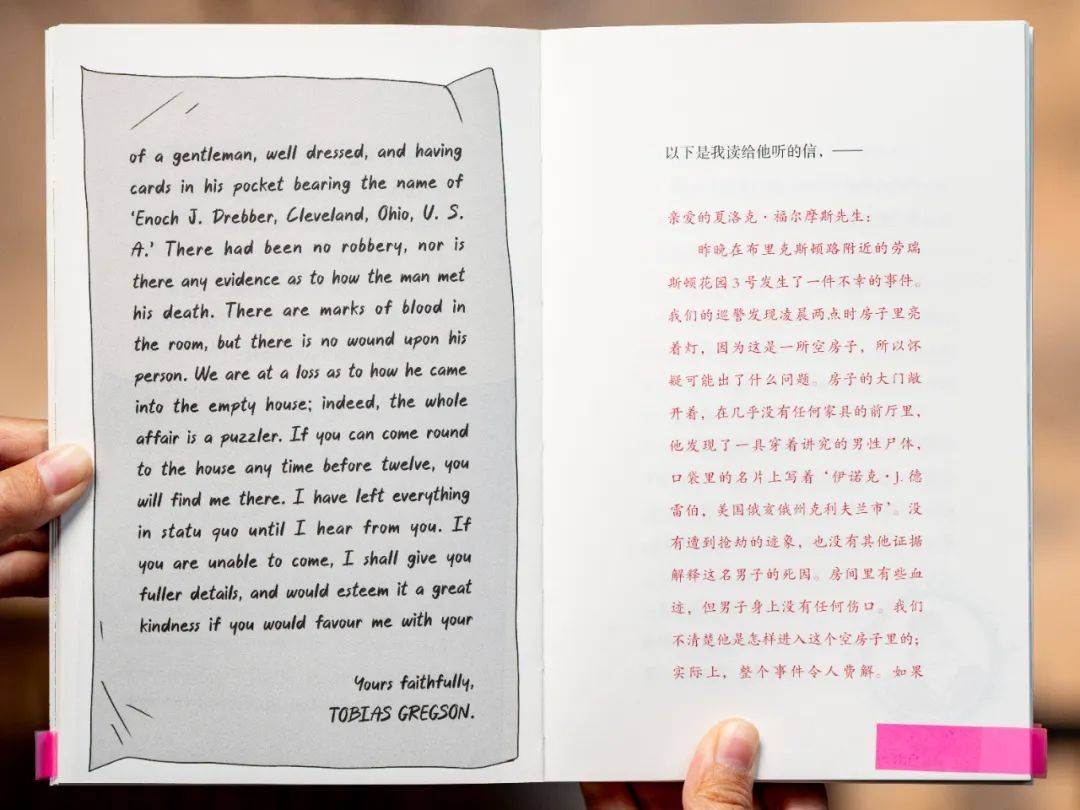 of a gentleman, well dressed, and having
cards in his pocket bearing the name of
‘Enoch J. Drebber, Cleveland, Ohio, U. S.
A.’ There had been no robbery, nor is
there any evidence as to how the man met
his death. There are marks of blood in
the room, but there is no wound upon his
person. We are at a loss as to how he came
into the empty house; indeed, the whole
affair is a puzzler. If you can come round
to the house any time before twelve, you
will find me there. I have left everything
in statu quo until I hear from you. If
you are unable to come, I shall give you
fuller details, and would esteem it a great
kindness if you would favour me with your
Yours faithfully,
TOBIAS GREGSON.
以下是我读给他听的信，——
亲爱的夏洛克·福尔摩斯先生：
昨晚在布里克斯顿路附近的劳瑞
斯顿花园3号发生了一件不幸的事件。
我们的巡警发现凌晨两点时房子里亮
着灯，因为这是一所空房子，所以怀
疑可能出了什么问题。房子的大门敞
开着，在几乎没有任何家具的前厅里，
他发现了一具穿着讲究的男性尸体，
口袋里的名片上写着‘伊诺克·J.德
雷伯，美国俄亥俄州克利夫兰市’。没
有遭到抢劫的迹象，也没有其他证据
解释这名男子的死因。房间里有些血
迹，但男子身上没有任何伤口。我们
不清楚他是怎样进入这个空房子里的；
实际上，整个事件令人费解。如果